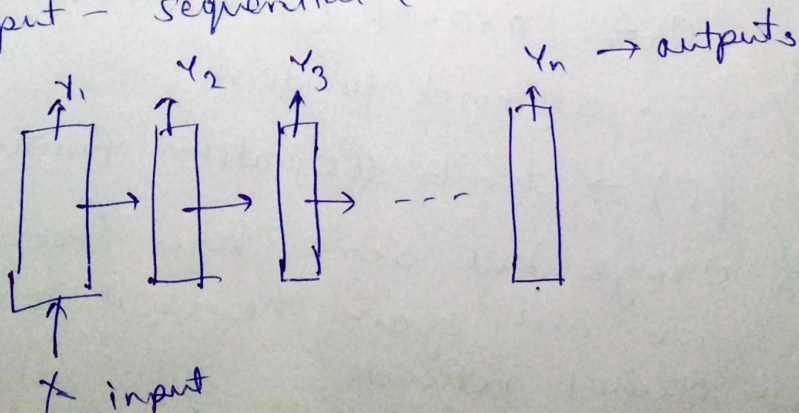 put - sequential (
Y1 Y2 Y3 Yn → outputs
X input